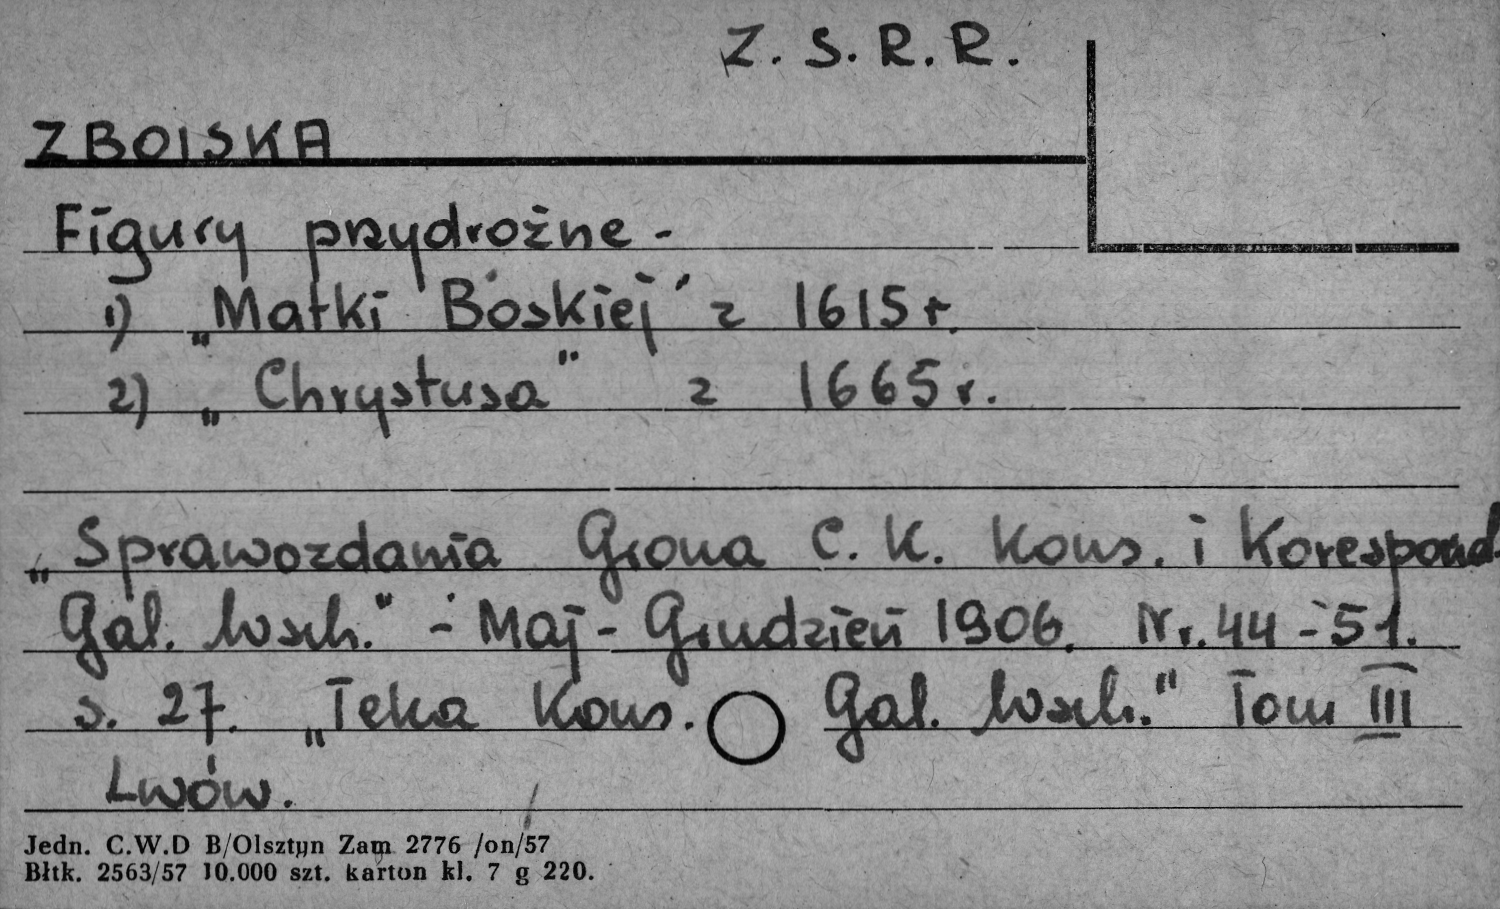 Z. S. R. R.
ZBOISKA
Figury przydrożne -
1) „Matki Boskiej" z 1615 r.
2) „Chrystusa" z 1665 r.
„Sprawozdania Grona C. K. Kons. i Korespond.
Gal. Wsch." - Maj - Grudzień 1906. Nr. 44 - 51.
s. 27. „Teka Kons. Gal. Wsch." Tom III
Lwów.
Jedn. C.W.D B/Olsztyn Zam 2776 /on/57
Błtk. 2563/57 10.000 szt. karton kl. 7 g 220.